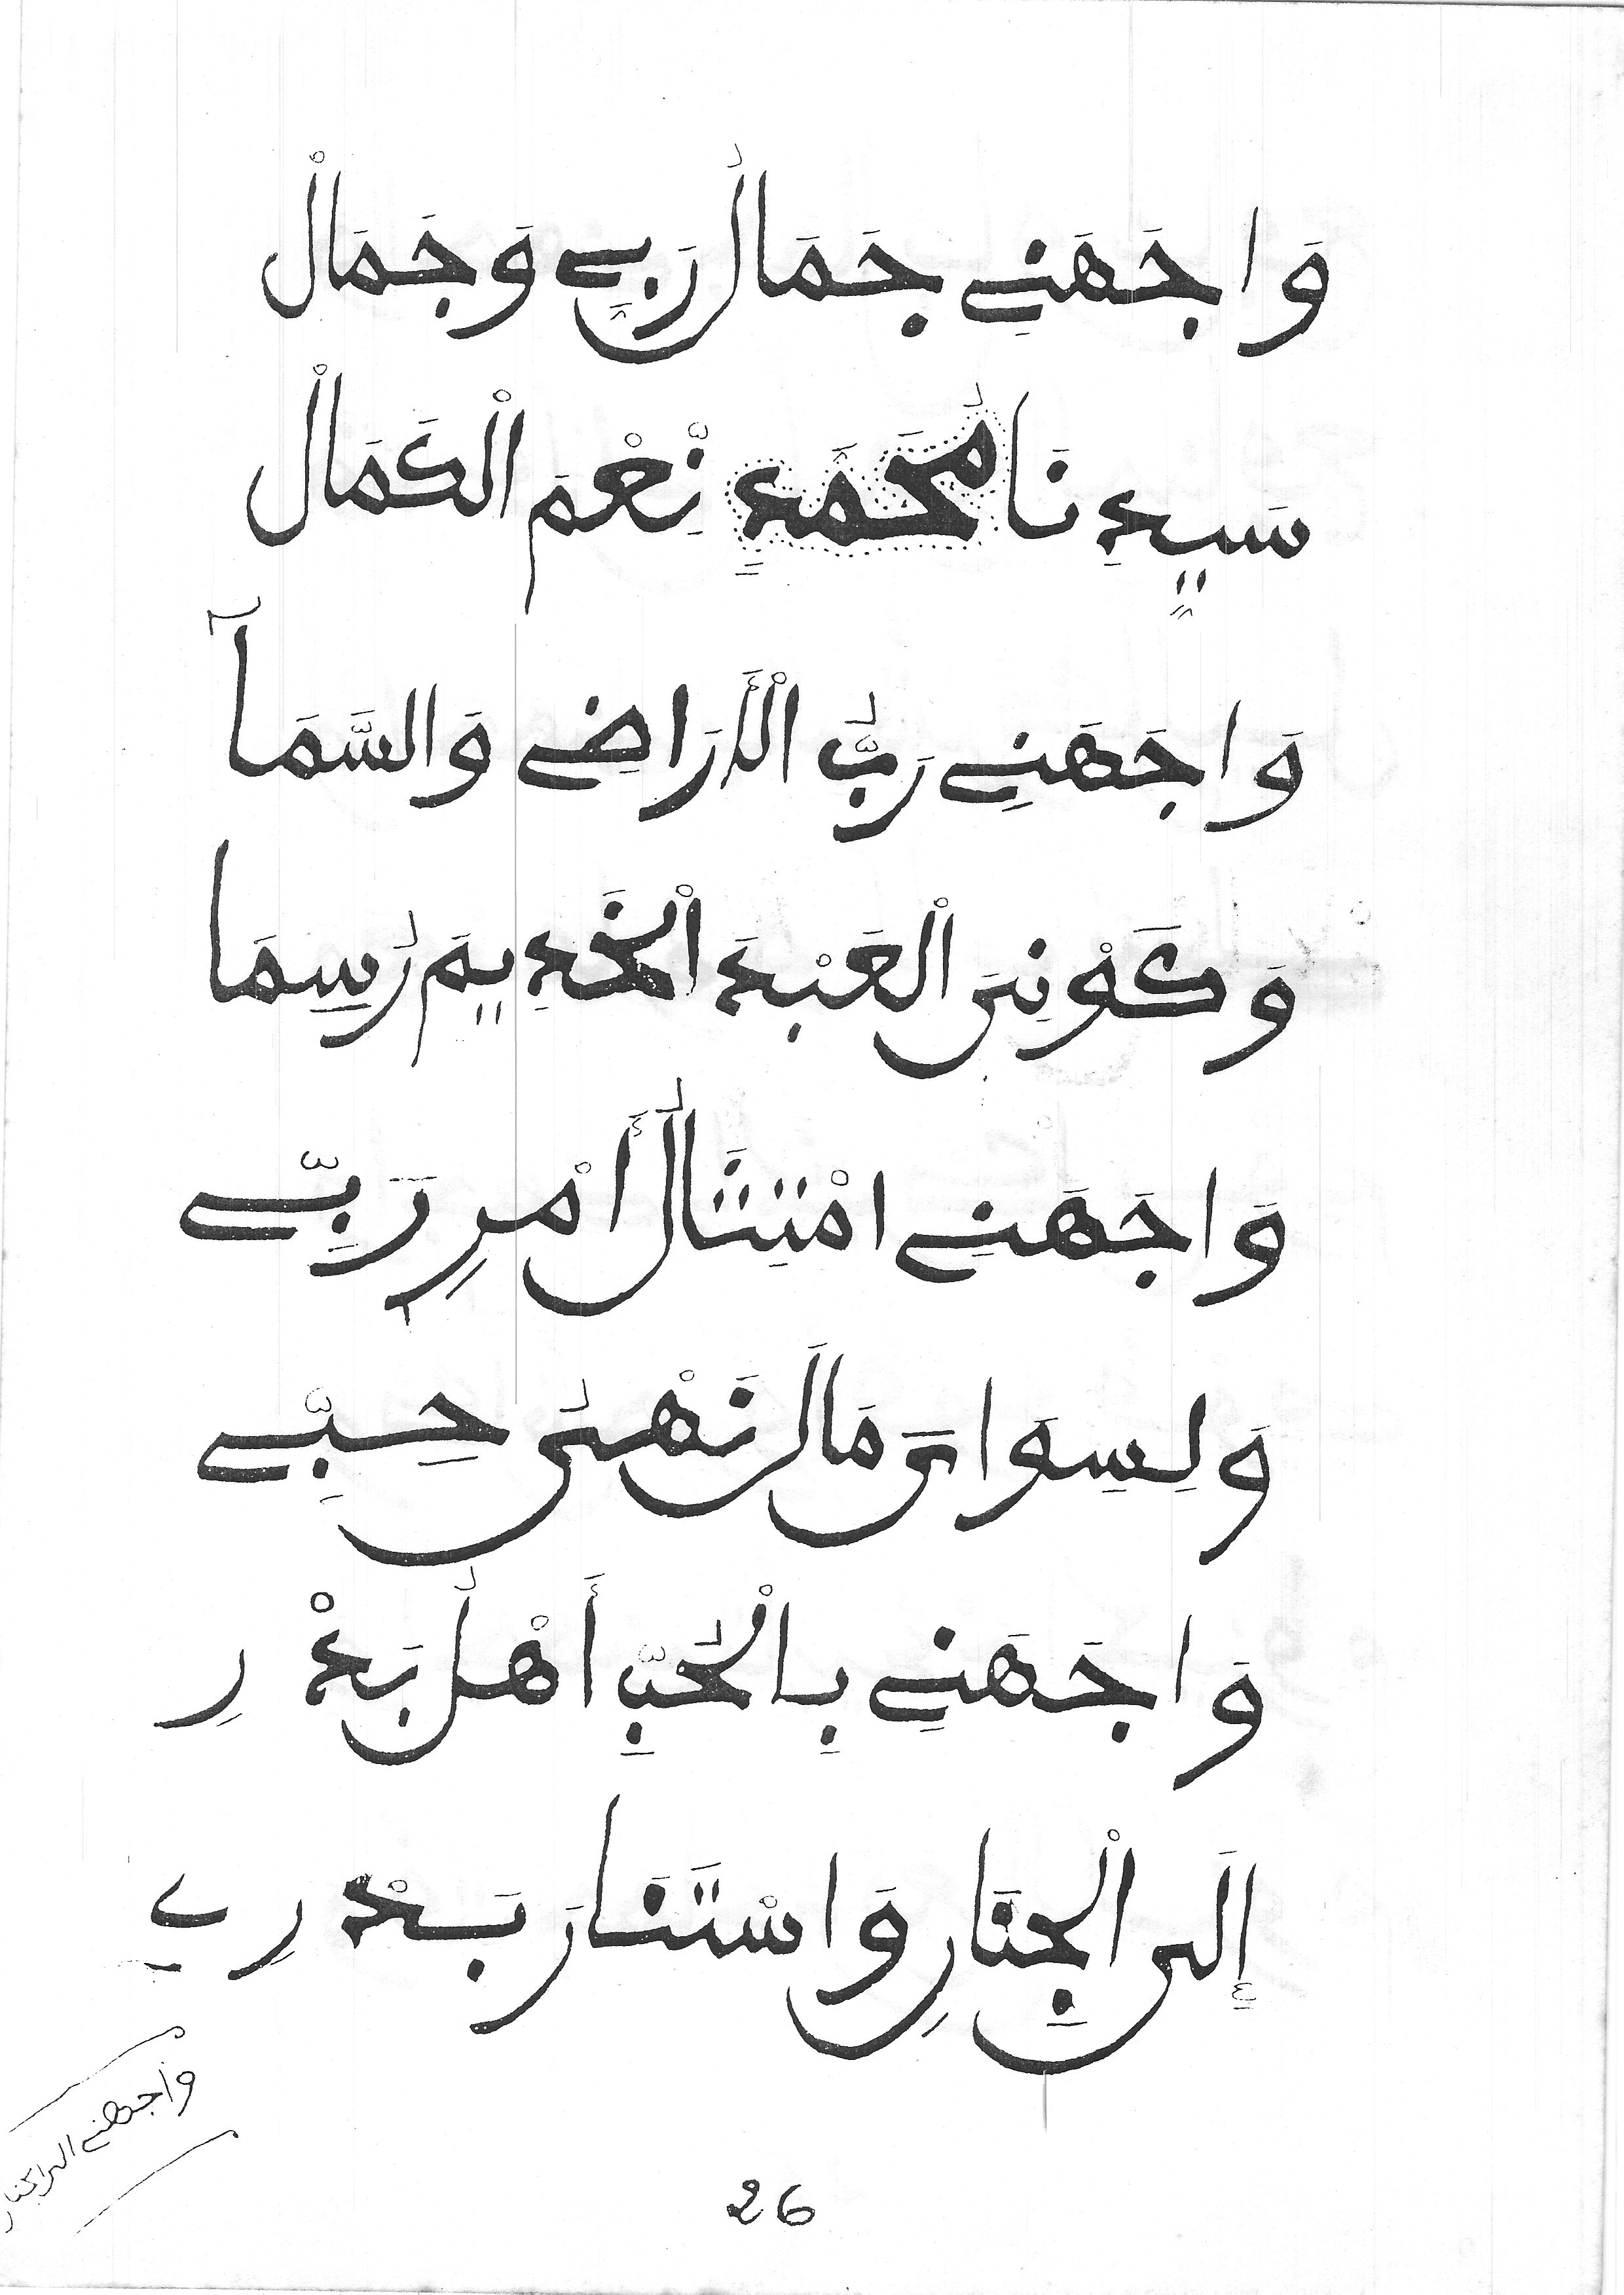 وَاجَهَنِے جَمَالُ رَبِّے وَجَمَالْ
سَيِّدِنَا مُحَمَّدٍ نِّعْمَ الْكَمَالْ
وَاجَهَنِے رَبُّ الْأَرَاضِے وَالسَّمَآ
وَكَوْنِىَ الْعَبْدَ الْخَدِيمَ رُسِمَا
وَاجَهَنِے امْتِثَالُ أَمْرِ رَبِّے
وَلِسِوَاىَ مَالَ نَهْىُ حِبِّے
وَاجَهَنِے بِالْحُبِّ أَهْلُ بَدْرِ
إِلَى الْجِنَانِ وَاسْتَنَارَ بَدْرِے
وَاجهنے الى الجنان
26